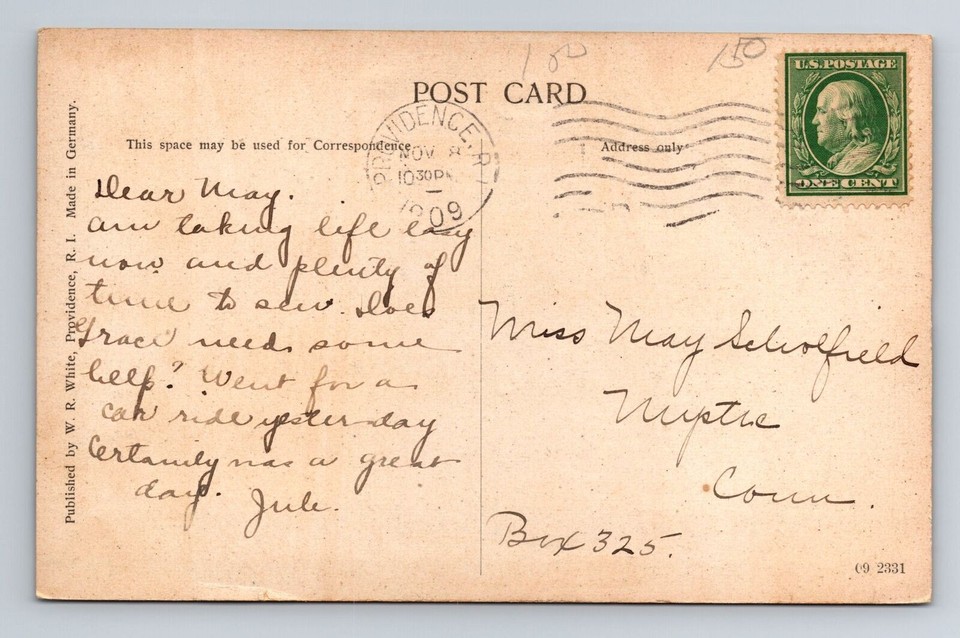 1 00
150
U.S. POSTAGE
ONE CENT
POST CARD
PROVIDENCE, R.I.
NOV 8
10 30 P
1909
This space may be used for Correspondence
Address only
Published by W. R. White, Providence, R. I. Made in Germany.
Dear May.
am taking life easy
now and plenty of
time to sew. Does
Grace need some
help? Went for a
car ride yesterday
Certainly was a great
day. Jule.
Miss May Scholfield
Mystic
Conn.
Box 325.
09 2331